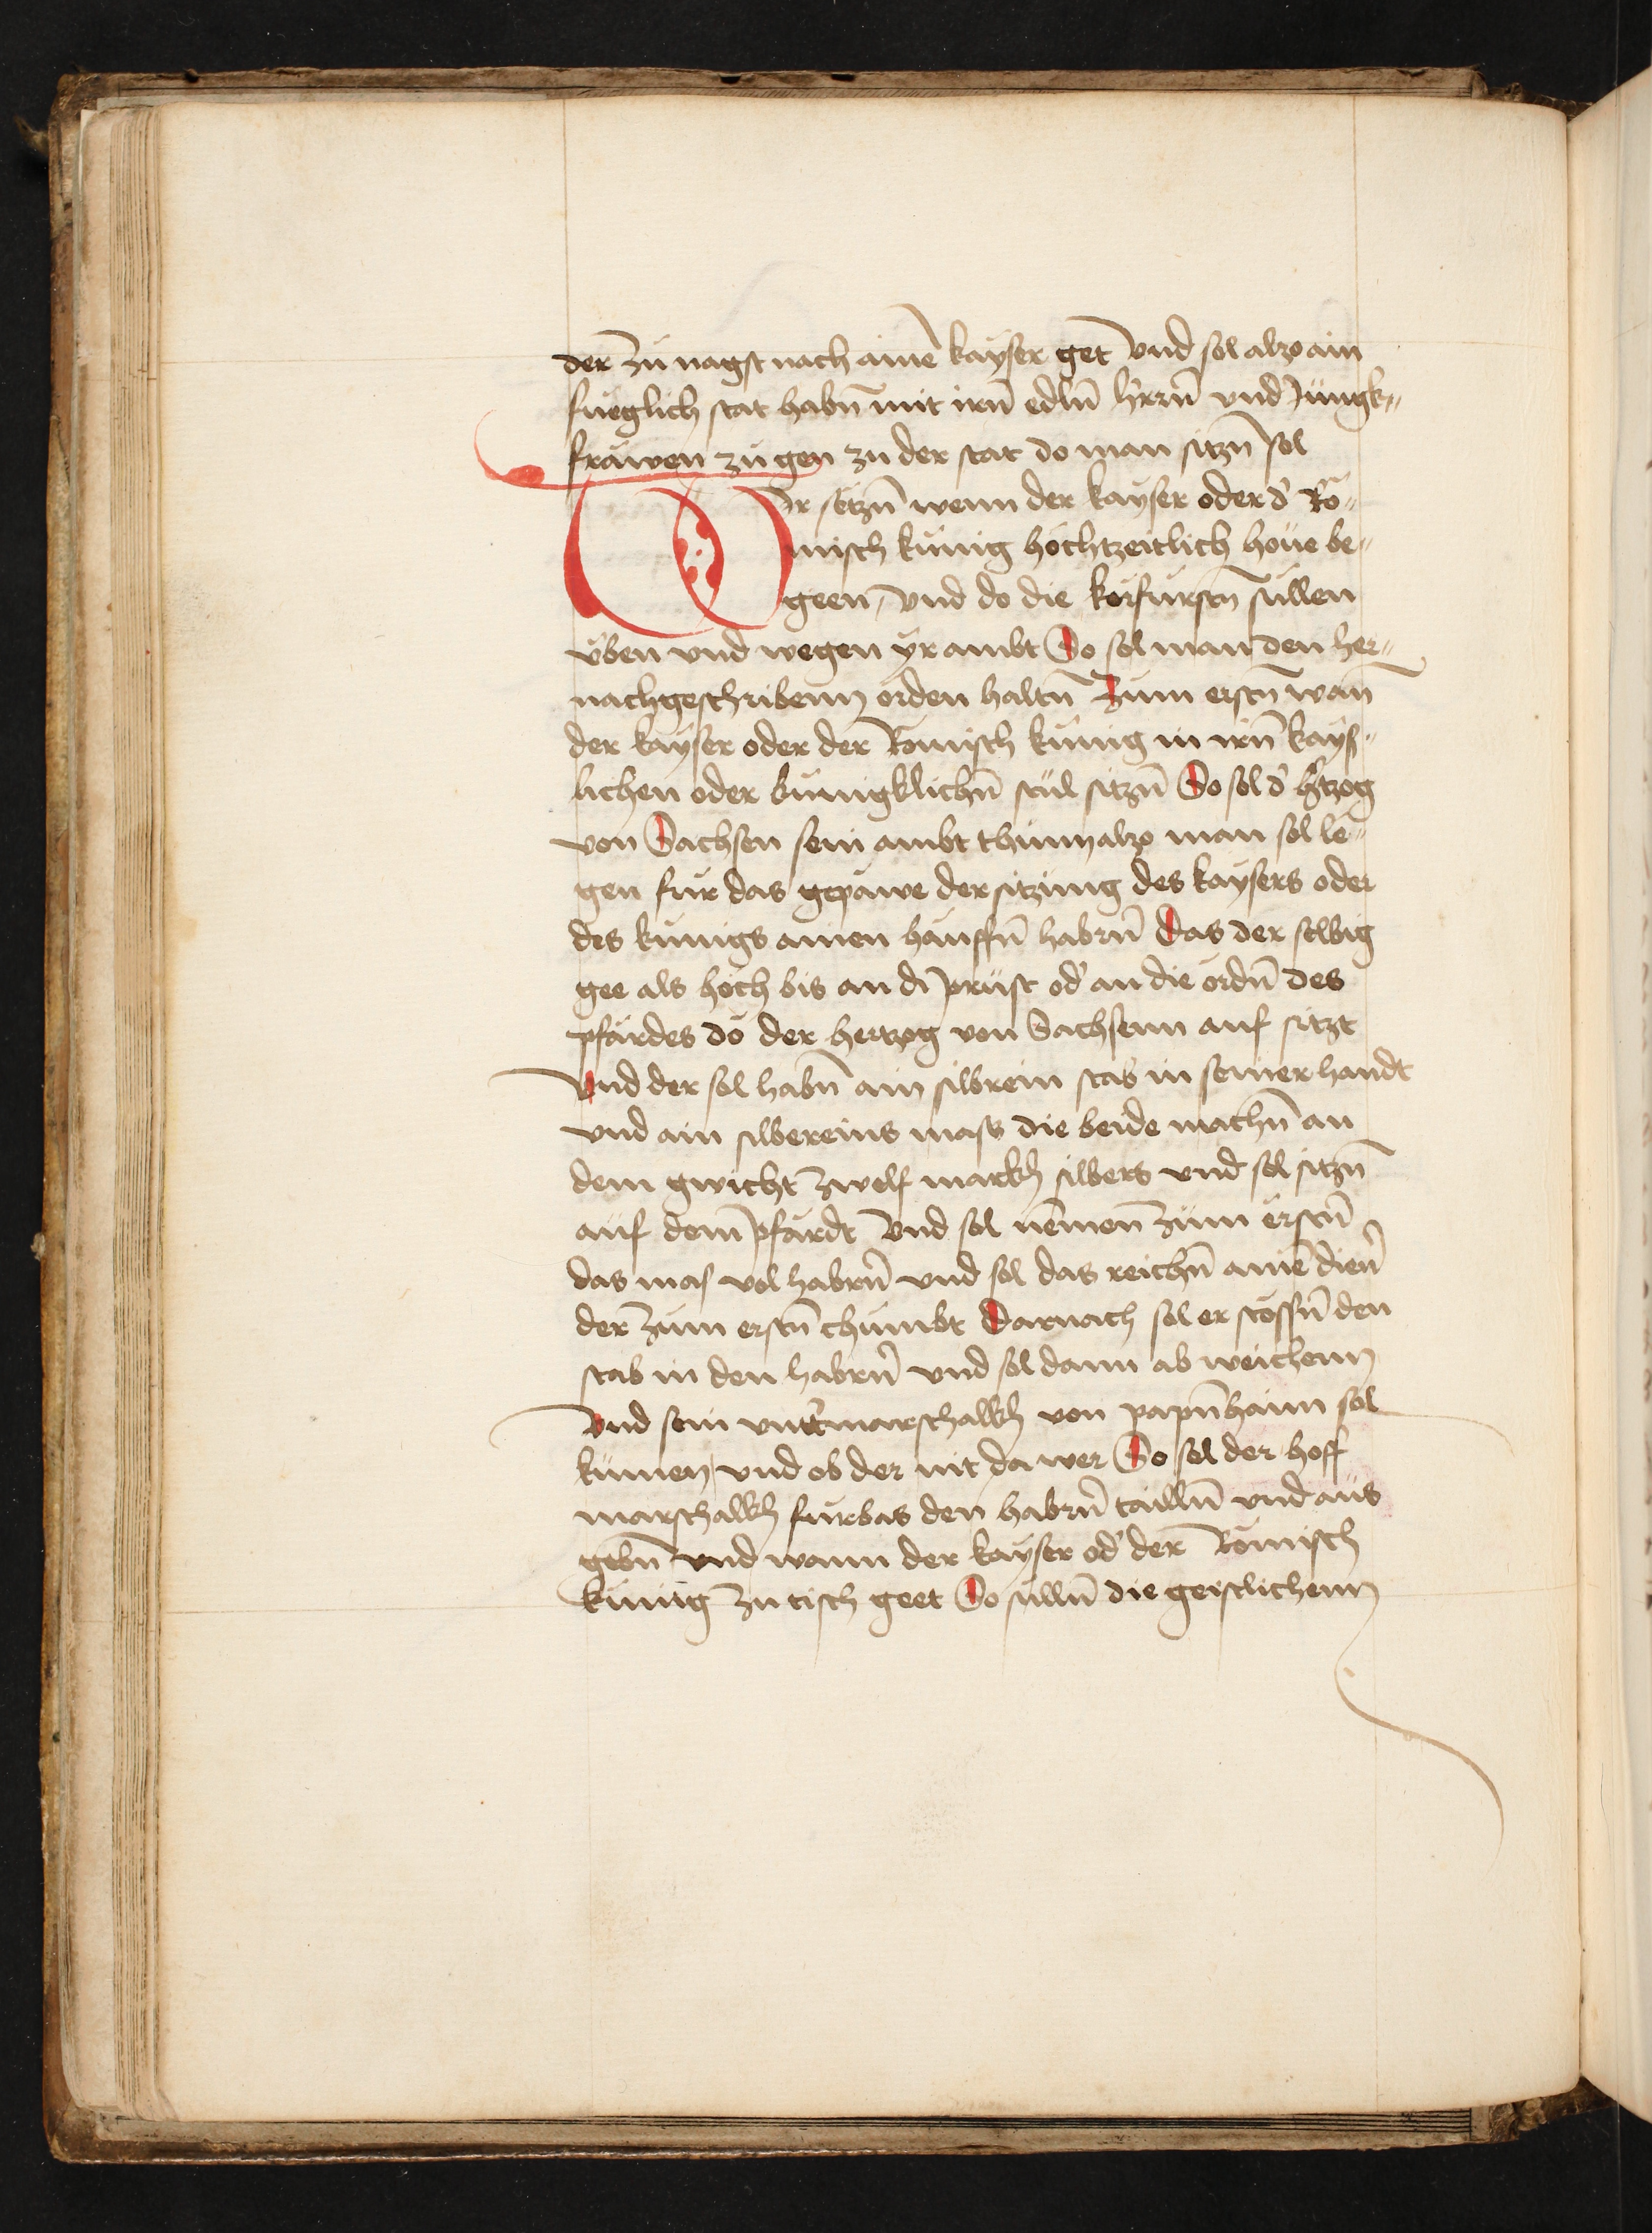 der zu nagst nach aine kayser get Vnd sol alzo ain
fueglich stat habn̄ mit irn̄ edln̄ hˀrrn̄ vnd Jungk„
frawen zu gen zu der stat do man sitzn̄ sol
Wir setzn̄ wenn der kayser oder dˀ Ro„
misch kunig hochtzeitlich houe be„
geen, vnd do die korfurstn̄ sullen
vben vnd wegen yr ambt So sol man den her„
nachgeschribenn orden haltn̄ Zum erstn̄ wan̄
der kayser oder der Romisch kunig in irn̄ kays„
lichen oder kunigklichn̄ stul sitzn̄ So sol dˀ hˀtzog
von Sachsen sein ambt thunn alzo man sol le„
gen fur das gepawe der sitzung des kaysers oder
des kunigs ainen hauffn̄ habrn̄ Das der selbig
gee als hoch bis an di prust odˀ an die ordn̄ des
pfardes do der hertzog von Sachsenn auf sitzt
Vnd der sol habn̄ ain silbrein stab in seiner handt
vnd ain silbereins mass die beide machn̄ an
dem gwicht zwelf markh silbers vnd sol sitzn̄
auf dem pfardt Vnd sol nemen zum erstn̄
das mas vol habrn̄ vnd sol das reichn̄ aine dienˀ
der zum erstn̄ chumbt Darnach sol er stossn̄ den
stab in den habrn̄ vnd sol dann ab weichenn
Vnd sein vntˀmarschalkh von papn̄haim sol
kumen vnd ob der nit da wer So sol der hoff
marschalkh furbas den habrn̄ tailln̄ vnd aus
gebn̄ vnd wann der kayser odˀ der Romisch
kunig zu tisch geet So sulln̄ die geistlichenn